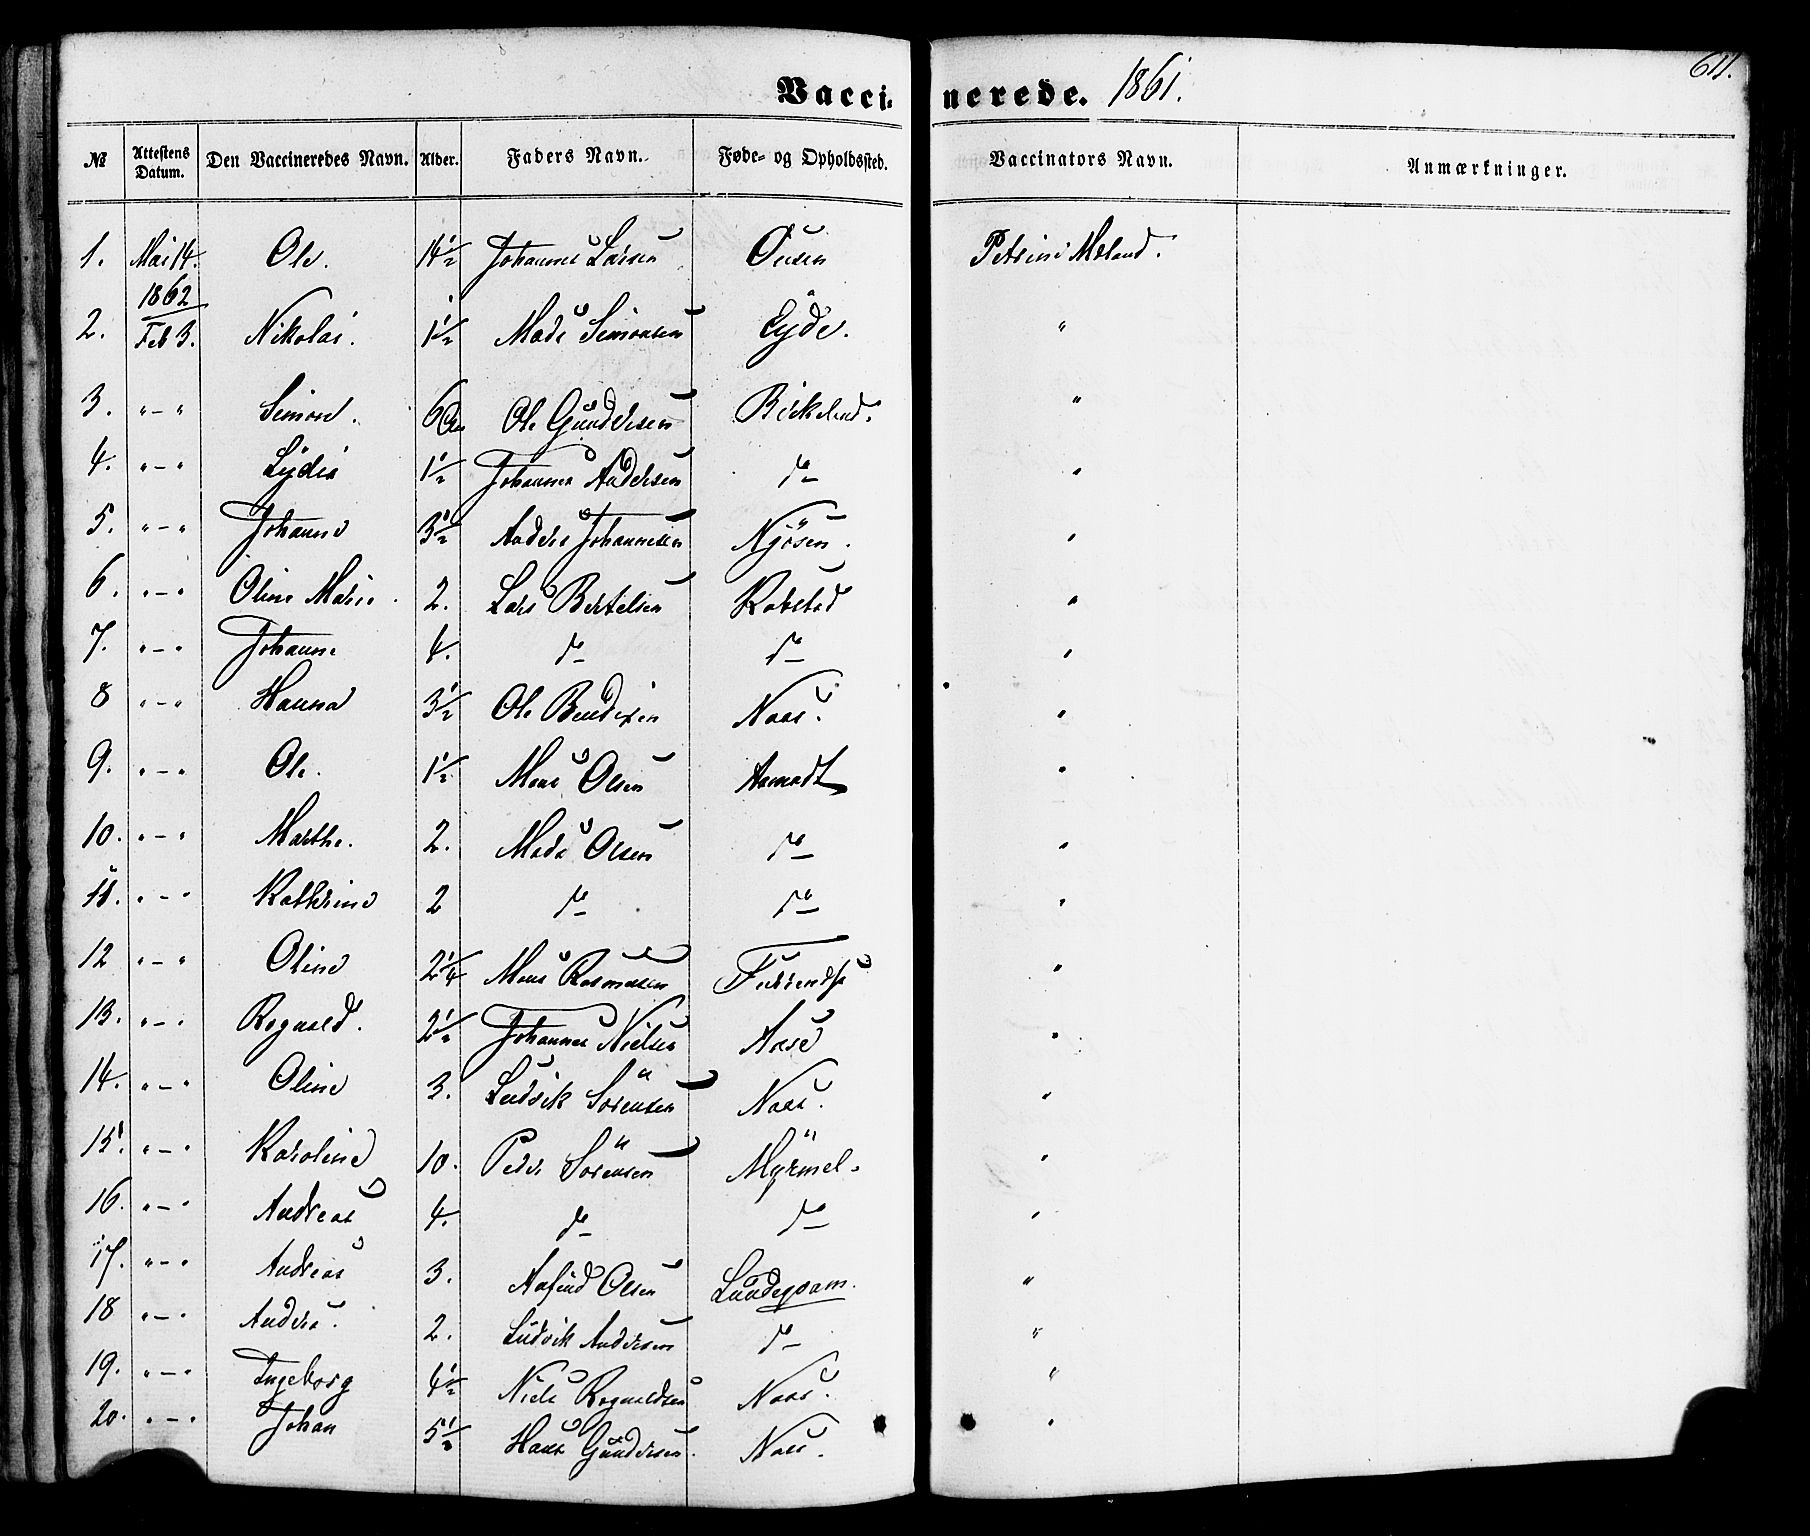 611.
Vaccinerede. 1861.
№ Attestens Datum. Den Vaccineredes Navn. Alder. Faders Navn. Føde- og Opholdssted. Vaccinators Navn. Anmærkninger.
1. Mai 14. Ole. 14½ Johannes Larsen Ousen Petrine Moland.
1862
2. Feb 3. Nikolai. 1½ Mads Simonsen Eyde. "
3. " - " Simon. 6 Ole Gundersen Birkeland. "
4. " - " Lydia 1½ Johannes Andersen do "
5. " - " Johanne 3½ Anders Johannesen Njösen. "
6. " - " Oline Marie. 2. Lars Bertelsen Robstad "
7. " - " Johanne 4. do do "
8 " - " Hanna 3½ Ole Bendixen Naas. "
9. " - " Ole. 1½ Mons Olsen Aamodt "
10. " - " Marthe. 2. Mads Olsen do "
11. " - " Kathrine 2 do do "
12 " - " Oline 2¼ Mons Rasmusen "
13. " - " Rognald. 2½ Johannes Nielsen Aase "
14. " - " Oline 3. Ludvik Sörensen Naas. "
15. " - " Karoline 10. Peder Sörensen Myrmel. "
16. " - " Andreas 4. do do "
17. " - " Andreas 3. Aasind Olsen Lundegvam. "
18 " - " Anders. 2. Ludvik Andersen do "
19. " - " Ingeborg 4½ Niels Rognaldsen Naas. "
20. " - " Johan 5½ Hans Gundersen. Naas. "